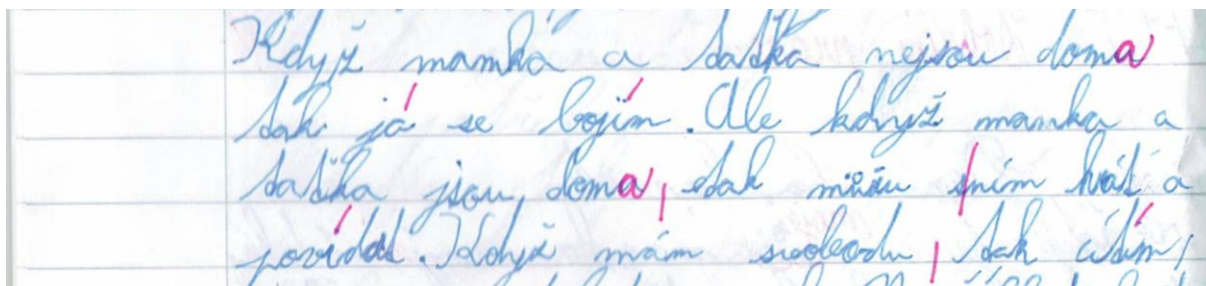 Když mamka a taťka nejsou doma
tak já se bojím. Ale když mamka a
taťka jsou doma, tak můžu sním hrát a
povídat. Když mám svobodu, tak cítím,